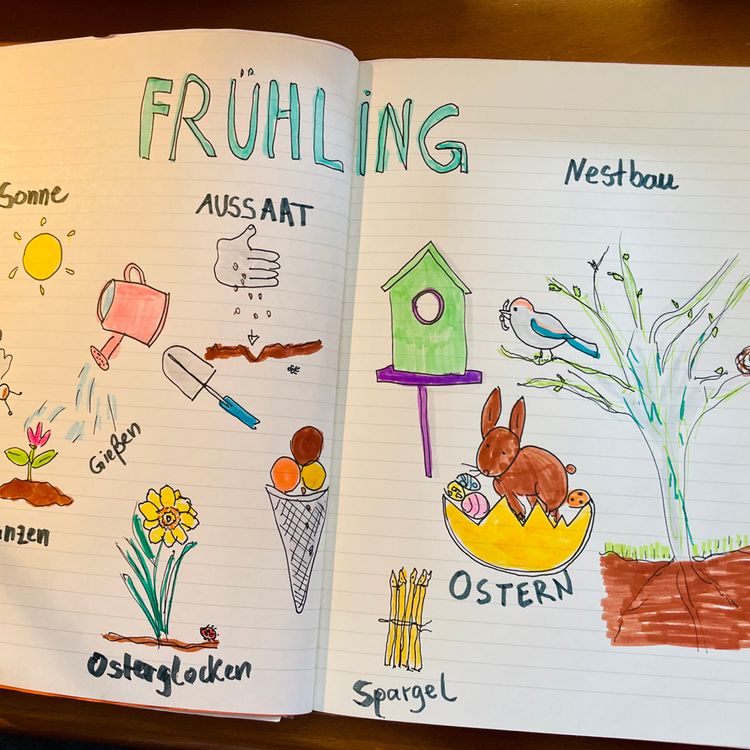 FRÜHLING
Sonne
AUSSAAT
Gießen
Osterglocken
Nestbau
OSTERN
Spargel